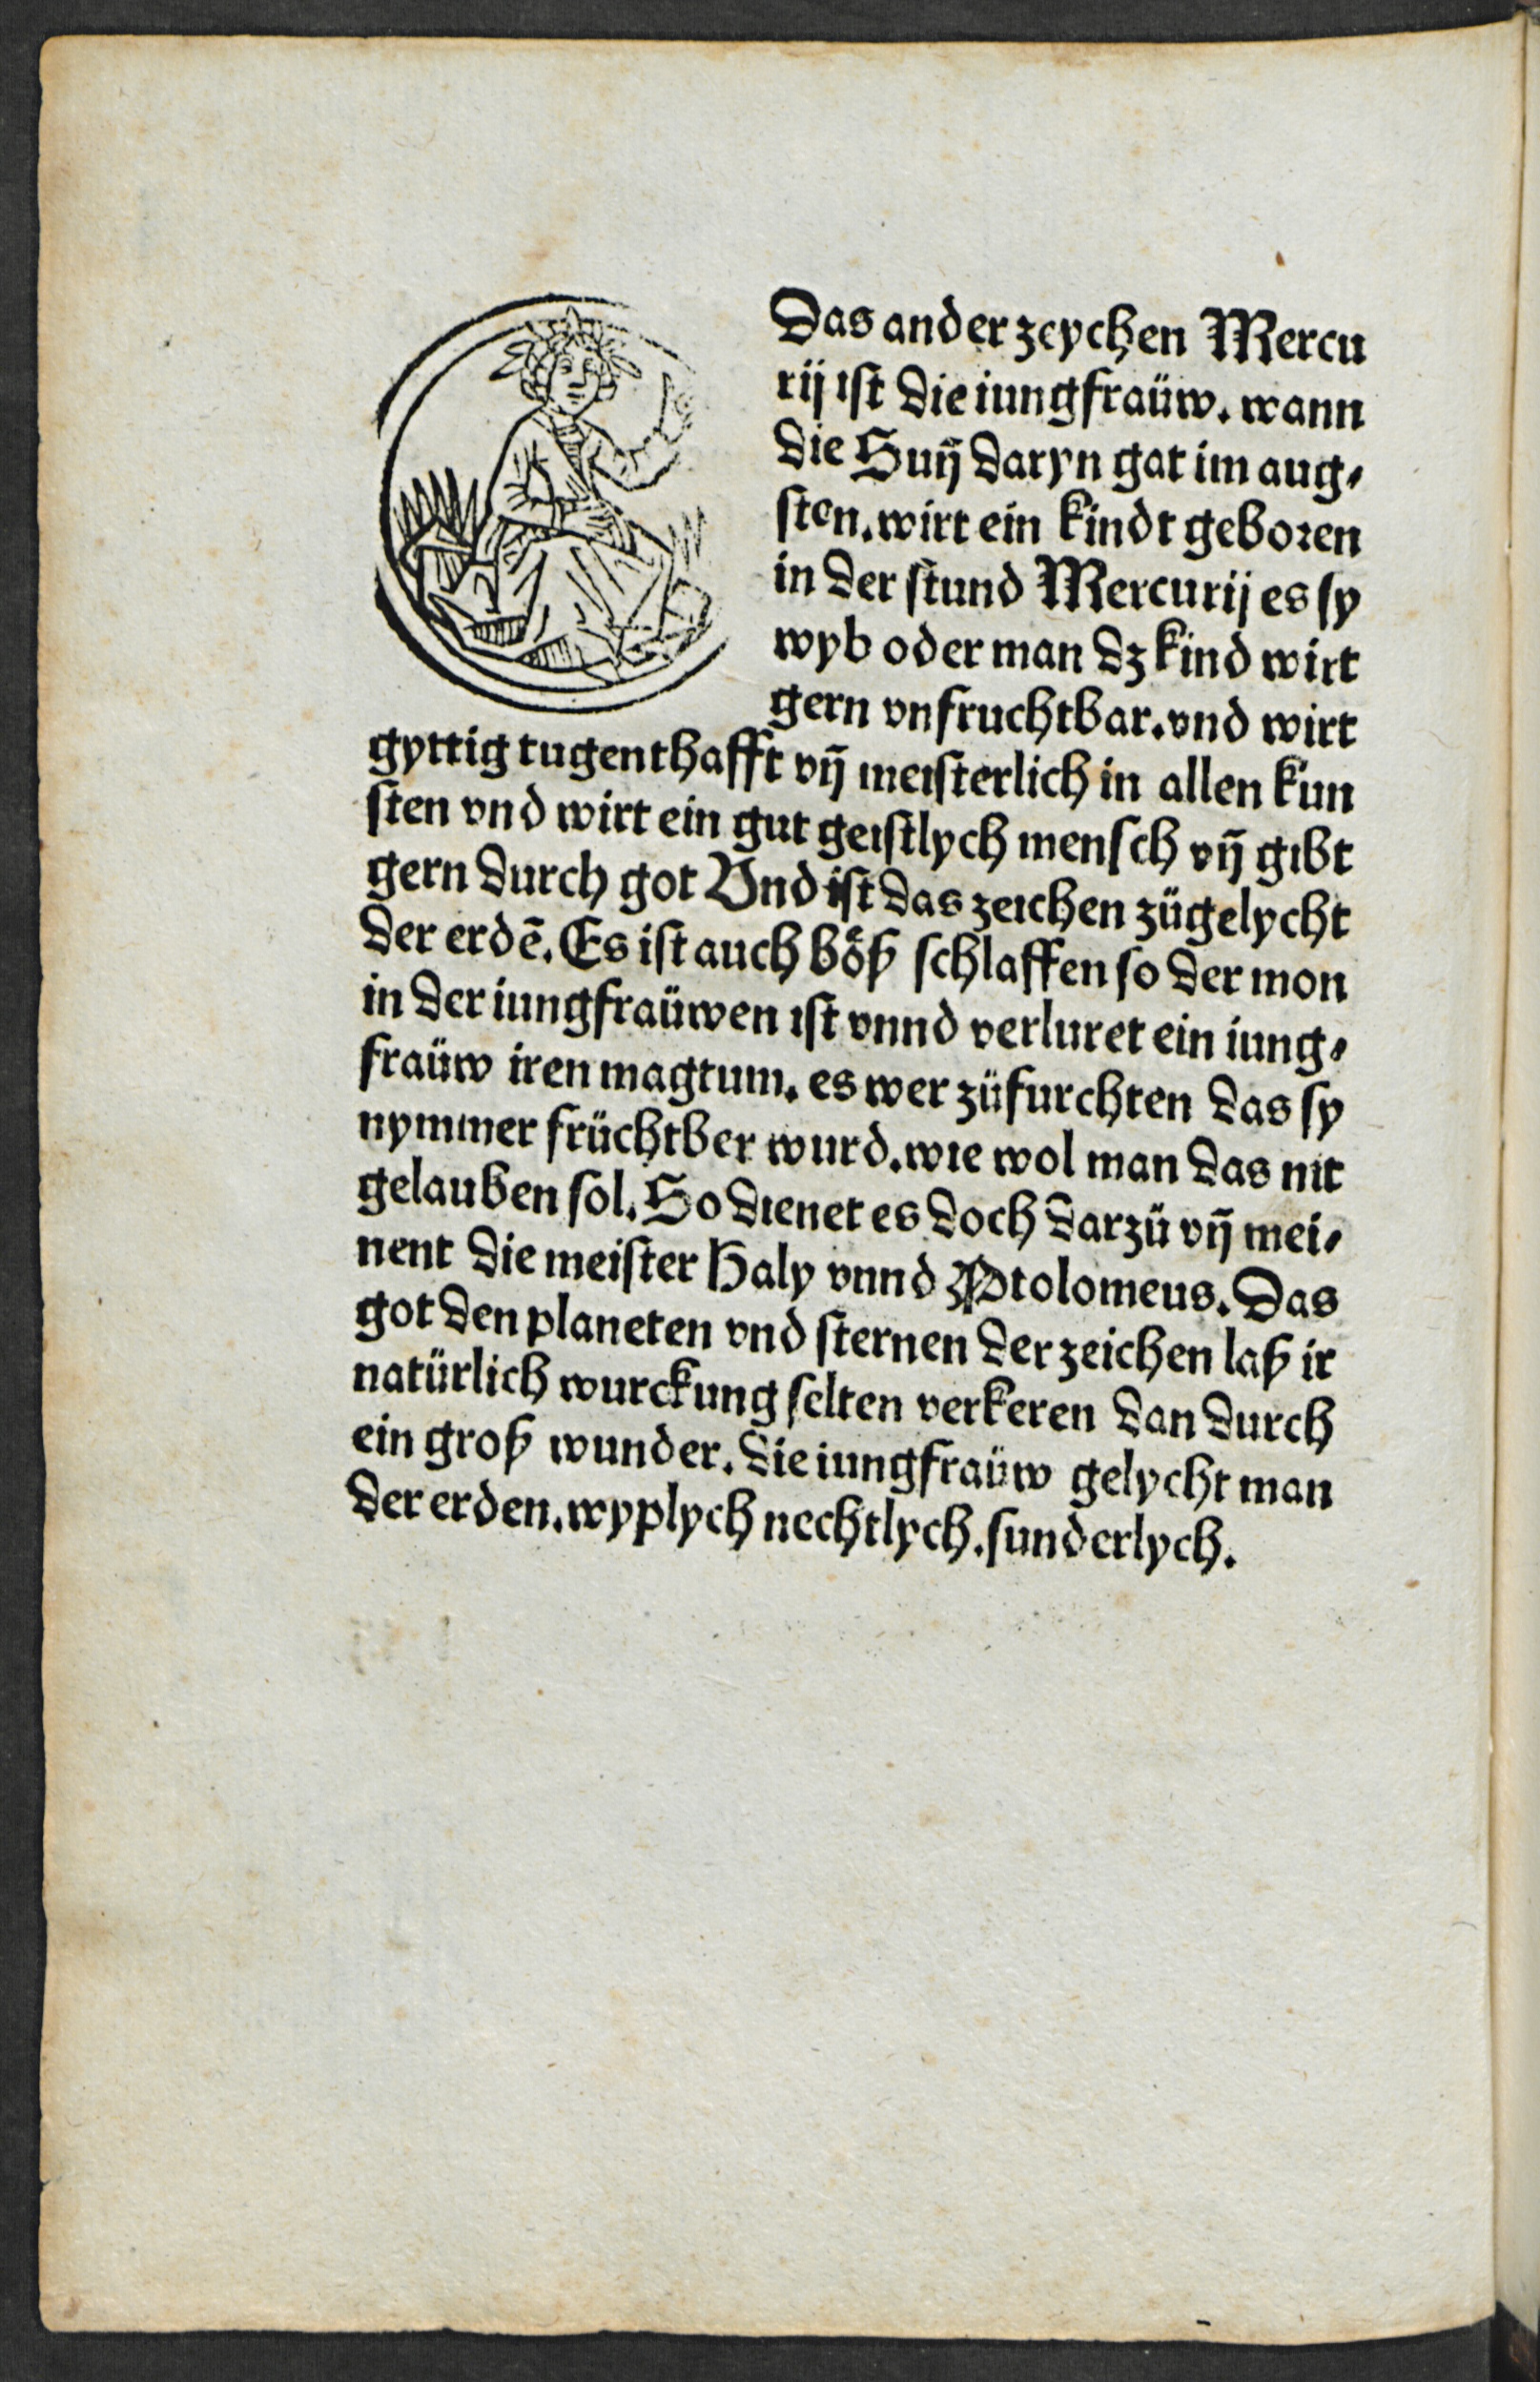 Das ander zeychen Mercu
rij ist die iungfraüw. wann
die Suñ daryn gat im aug⸗
sten. wirt ein kindt geboren
in der stund Mercurij es sy
wyb oder man dz kind wirt
gern vnfruchtbar. vnd wirt
gyttig tugenthafft vñ meisterlich in allen kun
sten vnd wirt ein gut geistlych mensch vñ gibt
gern durch got Vnd ist das zeichen zügelycht
der erdē. Es ist auch boͤß schlaffen so der mon
in der iungfraüwen ist vnnd verluret ein iung⸗
fraüw iren magtum. es wer züfurchten das sy
nymmer früchtber wurd. wie wol man das nit
gelauben sol. So dienet es doch darzü vñ mei⸗
nent die meister Haly vnnd Ptolomeus. Das
got den planeten vnd sternen der zeichen laß ir
natürlich wurckung selten verkeren dan durch
ein groß wunder. die iungfraüw gelycht man
der erden. wyplych nechtlych. sunderlych.